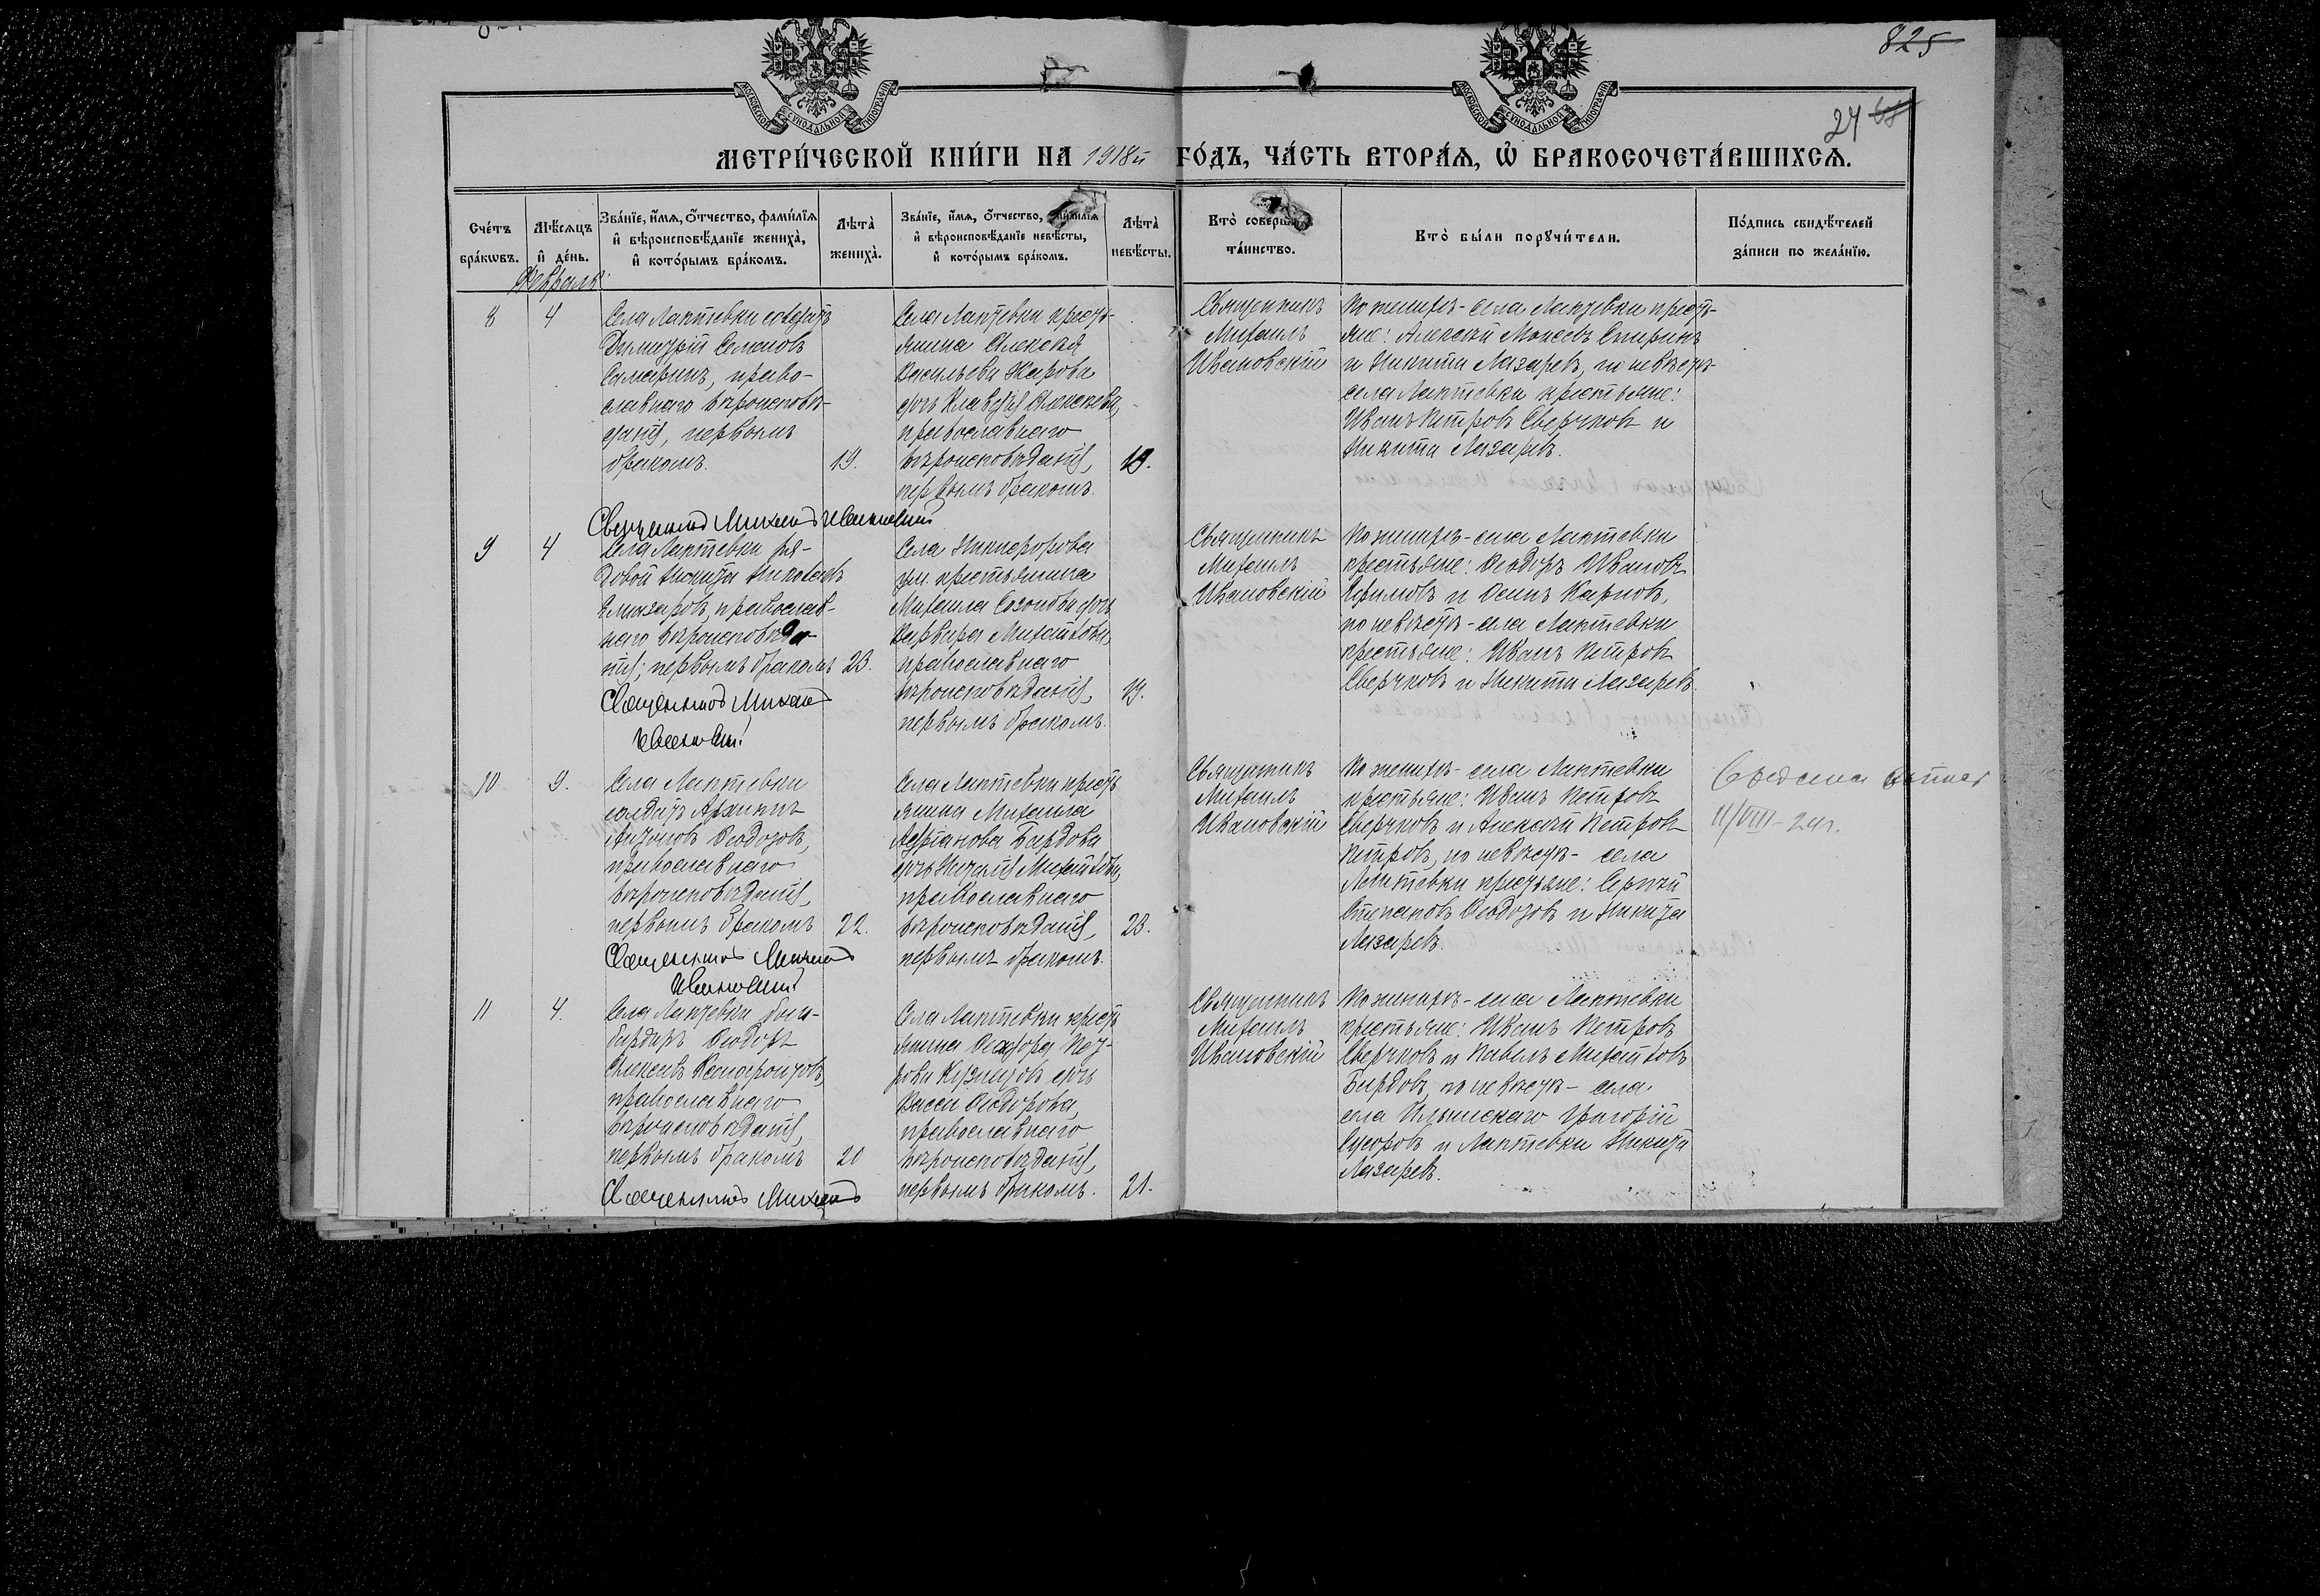 825
24
МЕТРИ́ЧЕСКОЙ КНИ́ГИ НА 1918й ГО́ДЪ, ЧА́СТЬ ВТОРА́Я, Ѡ БРАКОСОЧЕТА́ВШИХСЯ.
Сче́тъ бра́кѡвъ.
Мѣ́сяцъ и҆ де́нь.
Зва́нїе, и҆́мя, ѻ҆́тчество, фами́лїя и҆ вѣроисповѣ́данїе жениха̀, и҆ кото́рымъ бра́комъ.
Лѣ́та жениха̀.
Зва́нїе, и҆́мя, ѻ҆́тчество, фами́лїя и҆ вѣроисповѣ́данїе невѣ́сты, и҆ кото́рымъ бра́комъ.
Лѣ́та невѣ́сты.
Кто̀ соверша́лъ та́инство.
Кто̀ бы́ли порꙋчи́тели.
По́дпись свидѣ́телей за́писи по жела́нїю.
Февраль
8
4
Села Лаптевки солдатъ
Димитрій Семеновъ
Самаринъ, право-
славнаго вѣроисповѣ-
данія, первымъ
бракомъ.
19.
Села Лаптевки кресть-
янина Алексѣя
Васильева Жарова
дочь Клавдія Алексѣева,
православнаго
вѣроисповѣданія,
первымъ бракомъ.
19.
Священникъ
Михаилъ
Ивановскій
По женихѣ - села Лаптевки кресть-
яне: Алексѣй Моисеевъ Спиринъ
и Никита Лазаревъ, по невѣстѣ-
села Лаптевки крестьяне:
Иванъ Петровъ Сверчковъ и
Никита Лазаревъ.
Священникъ Михаилъ Ивановскій
9
4
Села Лаптевки ря-
довой Никита Николаевъ
Елизаровъ, православ-
наго вѣроисповѣда-
нія, первымъ бракомъ
23.
Села Никифорова
ум. крестьянина
Михаила Созонова дочь
Варвара Михайлова,
православнаго
вѣроисповѣданія,
первымъ бракомъ.
19.
Священникъ
Михаилъ
Ивановскій
По женихѣ - села Лаптевки
крестьяне: Ѳеодоръ Ивановъ
Ефимовъ и Осипъ Карповъ,
по невѣстѣ - села Лаптевки
крестьяне: Иванъ Петровъ
Сверчковъ и Никита Лазаревъ.
Священникъ Михаилъ
Ивановскій
10
9.
Села Лаптевки
солдатъ Архипъ
Антоновъ Ѳеодоровъ,
православнаго
вѣроисповѣданія,
первымъ бракомъ
22.
Села Лаптевки кресть
янина Михаила
Адріанова Бардова
дочь Наталія Михайлова,
православнаго
вѣроисповѣданія,
первымъ бракомъ.
23.
Священникъ
Михаилъ
Ивановскій
По женихѣ - села Лаптевки
крестьяне: Иванъ Петровъ
Сверчковъ и Алексѣй Петровъ
Петровъ, по невѣстѣ - села
Лаптевки крестьяне: Сергѣй
Степановъ Ѳеодоровъ и Никита
Лазаревъ.
11/VIII-24г.
Священникъ Михаилъ
Ивановскій
11
4.
Села Лаптевки бом-
бардиръ Ѳеодоръ
Алексѣевъ Ксенофонтовъ,
православнаго
вѣроисповѣданія,
первымъ бракомъ
20
Села Лаптевки кресть
янина Ѳеодора Пет-
рова Кузнецова дочь
Васса Ѳеодорова,
православнаго
вѣроисповѣданія,
первымъ бракомъ.
21.
Священникъ
Михаилъ
Ивановскій
По женихѣ - села Лаптевки
крестьяне: Иванъ Петровъ
Сверчковъ и Павелъ Михайловъ
Бардовъ, по невѣстѣ - села
села Ильинскаго Григорій
Сидоровъ и Лаптевки Никита
Лазаревъ.
Священникъ Михаилъ